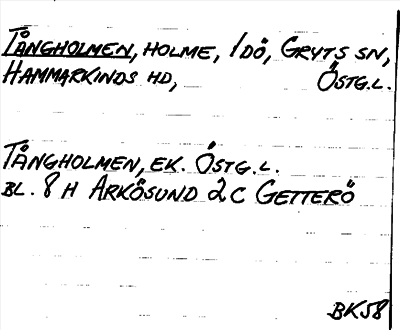 TÅNGHOLMEN, HOLME, IDÖ, GRYTS SN,
HAMMARKINDS HD, ÖSTG.L.
TÅNGHOLMEN, EK. ÖSTG.L.
BL. 8 H ARKÖSUND 2 C GETTERÖ
BK58